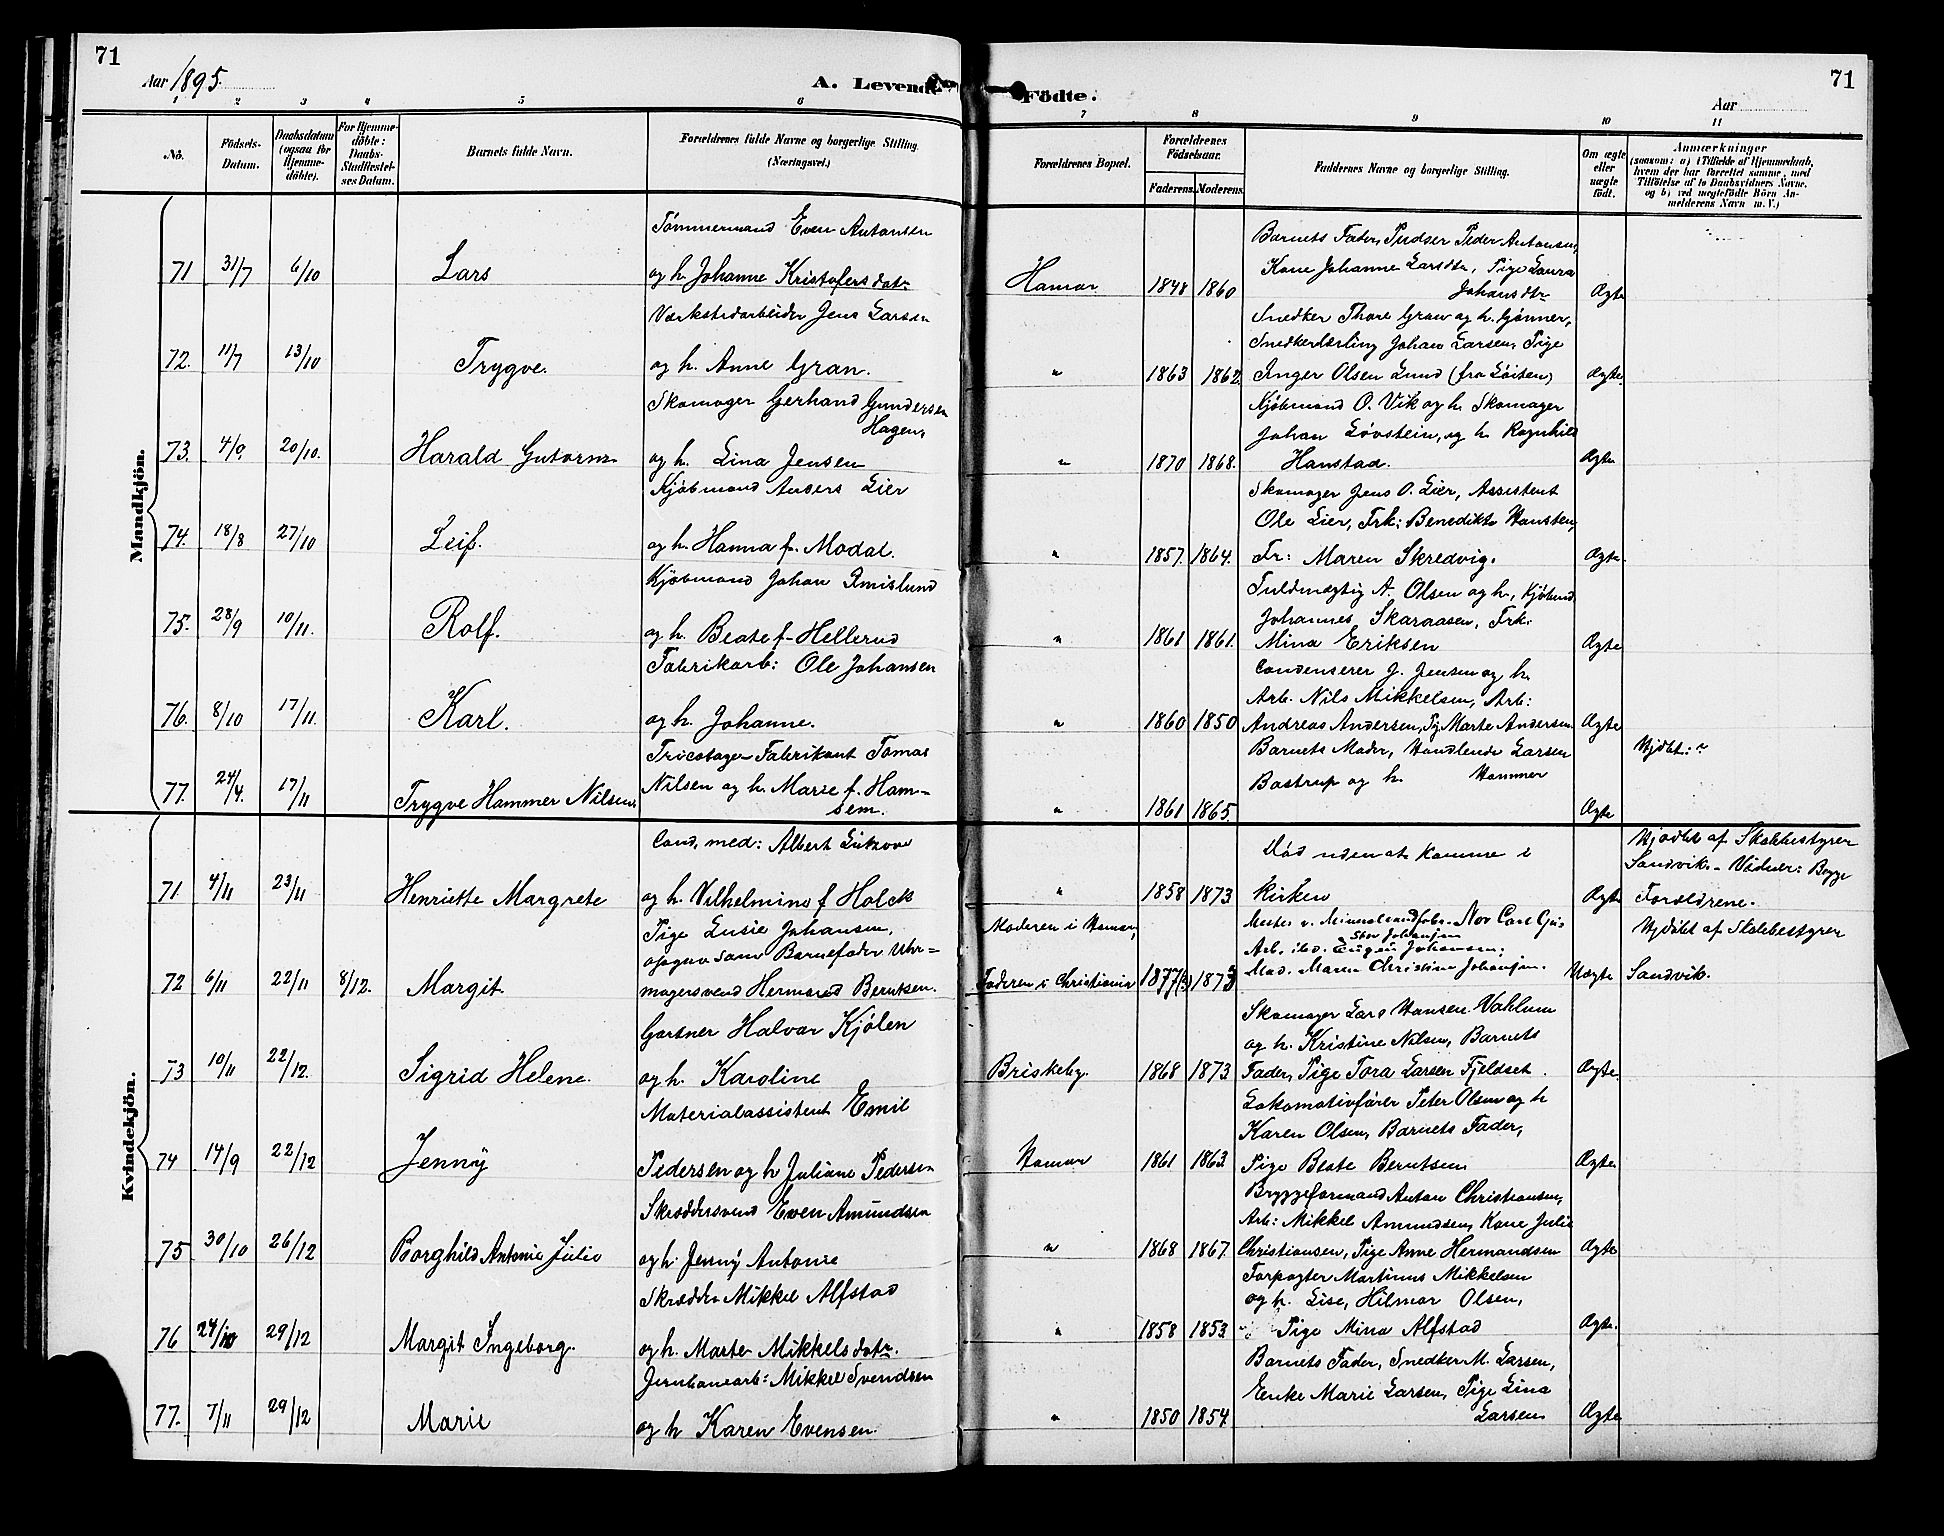 71
Aar 1895.
A. Levende
Födte.
71
Aar
1 2 3 4 5 6 7 8 9 10 11
No.
Födsels-Datum.
Daabsdatum (ogsaa for Hjemmedöbte).
For Hjemmedöbte: Daabs-Stadfæstelses Datum.
Barnets fulde Navn.
Forældrenes fulde Navne og borgerlige Stilling. (Næringsvei.)
Forældrenes Bopæl.
Forældrenes Födselsaar.
Faderens. Moderens.
Faddernes Navne og borgerlige Stilling.
Om ægte eller uægte födt.
Anmærkninger
(saasom: a) i Tilfælde af Hjemmedaab, hvem der har forrettet samme, med Tilföielse af to Daabsvidners Navne, og b) ved uægtefödte Börn Anmelderens Navn m. V.)
Mandkjön.
Tømmermand Even Antonsen
Barnets Fader, Pudser Peder Antonsen,
71 31/7 6/10 Lars og h. Johanne Kristofersdatr Hamar 1848 1860 Kone Johanne Larsdtr, Pige Laura
Johansdtr Ægte
Værkstedarbeider Jens Larsen
Snedker Thore Gran og h. Gønner,
Snedkerlærling Johan Larsen, Pige
72. 11/7 13/10 Trygve. og h. Anne Gran. " 1863 1862 Inger Olsen Lund (fra Löiten) Ægte.
Skomager Gerhard Gundersen
Hagen,
Kjöbmand O. Vik og h. Skomager
Johan Lövstein, og h. Ragnhild
73. 20/10. Harald Gutorm og h. Lina Jensen " 1870 1868. Hanstad. Ægte
Kjöbmand Anders Lier
Skomager Jens O. Lier, Assistent
Ole Lier, Frk: Benedikte Hansten,
74. 18/8 27/10 Leif. og h. Hanna f. Modal. " 1857. 1864. Fr: Maren Skredvig. Ægte.
Kjöbmand Johan Smislund
Fuldmægtig A. Olsen og h, Kjöbmd
Johannes Skaraasen, Frk:
75. 28/9 10/11. Rolf. og h. Beate f. Hellerud " 1861 1861. Mina Eriksen Ægte
Fabrikarb: Ole Johansen
Condenserer J. Jensen og h.
Arb. Nils Mikkelsen, Arb:
76. 8/10 17/11. Karl. og h. Johanne. " 1860 1850 Andreas Andersen, Pg. Marte Andersen Ægte
Tricotage Fabrikant Tomas
Barnets Moder, Handlende Larsen
Hjdbt: ?
77. 24/4. 17/11 Trygve Hammer Nilsen. Nilsen og h. Marie f. Hamsem. " 1861 1865. Bastrup og h. Hammer Ægte
Kvindekjön.
Cand. med: Albert Lützow
Död uden at komme i
Hjdöbt af Skolebestyrer
Sandvik. - Vidner: Begge
71 4/11 23/11 Henriette Margrete og h. Vilhelmine f Holck " 1858 1873 Kirken Ægte Forældrene.
Pige Lusie Johansen,
Moderen i Hamar,
Hjdöbt af Skolebestyrer
opgav som Barnefader Uhr-
Eugen Johansen.
72 6/11 22/11 8/12. Margit. magersvend Hermand Berntsen. Faderen i Christiania 1877(?) 1875 Mad. Maren Christine Johansen. Uægte Sandvik.
Gartner Halvor Kjölen
Skomager Lars Hansen Vahlum
og h. Kristine Nilsen, Barnets
73 10/11 22/12. Sigrid Helene. og h. Karoline Briskeby. 1868 1873 Fader, Pige Tora Larsen Fjeldset. Ægte.
Materialassistent Emil
Lokomotivfører Peter Olsen og h
Karen Olsen, Barnets Fader,
74 14/9 22/12 Jenny Pedersen og h Juliane Pedersen Hamar 1861 1863 Pige Beate Berntsen Ægte
Skræddersvend Even Amundsen
Bryggeformand Anton Christiansen,
Arb: Mikkel Amundsen, Kone Julie
75 30/10 26/12 Borghild Antonie Julie og h. Jenny Antonie " 1868 1867. Christiansen, Pige Anne Hermandsen Ægte
Skrædder Mikkel Alfstad
Forpagter Martinus Mikkelsen
og h. Lise, Hilmar Olsen,
76 24/10 29/12 Margit Ingeborg. og h. Marte Mikkelsdatr. " 1858 1853 Pige Mina Alfstad Ægte.
Jernbanearb: Mikkel Svendsen
Barnets Fader, Snedker M. Larsen,
Enke Marie Larsen, Pige Lina
77. 7/11 29/12 Marie og h Karen Evensen. " 1850 1854. Larsen Ægte